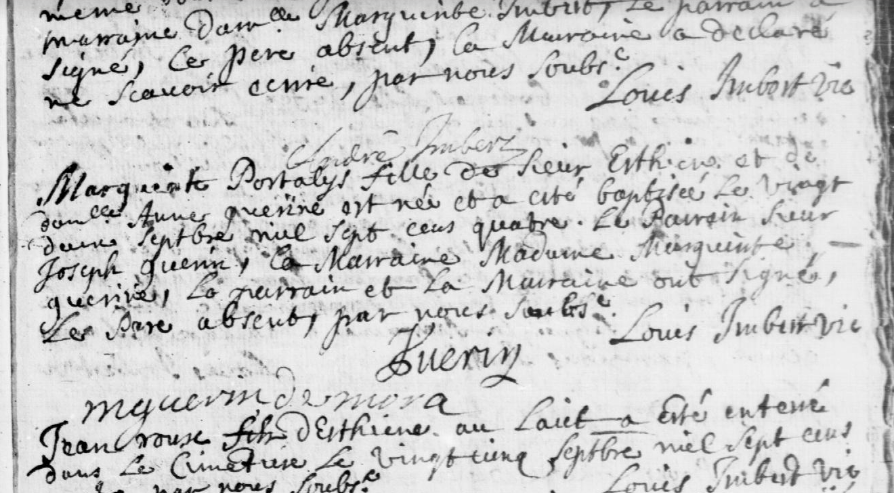 marraine Damlle Marguerite Imbert, Le parrain a
signé, Le pere absent, La Marraine a declaré
ne scavoir ecrire, par nous soubs.e
Louis Imbert vic
André Imbert
Marguerite Portalys fille de Sieur Esthiene et de
damlle Anne guerine est née et a eité baptisée Le vingt
deux Septbre mil sept cens quatre. Le Parrain Sieur
Joseph guerin, La Marraine Madame Marguerite
guerine, Le parrain et La Marraine ont signé,
Le Pere absent, par nous soubs.e
Louis Imbert vic
Guerin
mguerin de mora
Jean roux fils d'Esthiene au Laict a esté enterré
dans Le Cimetiere Le vingt cinq septbre mil sept cens
par nous soubs.e
Louis Imbert vic